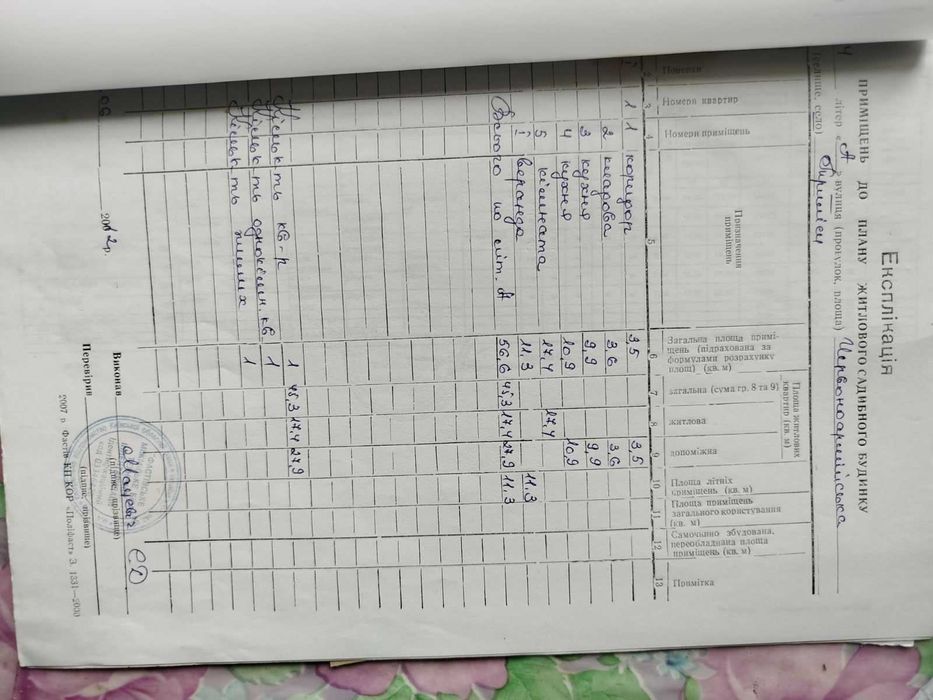 Експлікація
ПРИМІЩЕНЬ ДО ПЛАНУ ЖИТЛОВОГО САДИБНОГО БУДИНКУ
літер « А » вулиця (провулок, площа) Червоноармійська
(селище, село)
Поверхи
Номери квартир
Номери приміщень
Призначення приміщень
Загальна площа приміщень (підрахована за формулами розрахунку площ) (кв. м)
Площа житлових квартир (кв. м)
загальна (сума гр. 8 та 9)
житлова
допоміжна
Площа літніх приміщень (кв. м)
Площа приміщень загального користування (кв. м)
Самочинно збудована, переобладнана площа приміщень (кв. м)
Примітка
2 3 4 5 6 7 8 9 10 11 12 13
1 1 коридор 3,5 3,5
2 кладова 3,6 3,6
3 кухня 9,9 9,9
4 кухня 10,9 10,9
5 кімната 17,4 17,4
І веранда 11,3 11,3
Всього по літ. А 56,6 45,3 17,4 27,9 11,3
Кількість кв-р 1 45,3 17,4 27,9
Кількість однокімн. кв 1
Кількість жилих 1
06 2012 р.
Виконав
(підпис, прізвище)
Перевірив
(підпис, прізвище)
2007 р. Фастів КП КОР «Поліфаст» З. 1331—2000